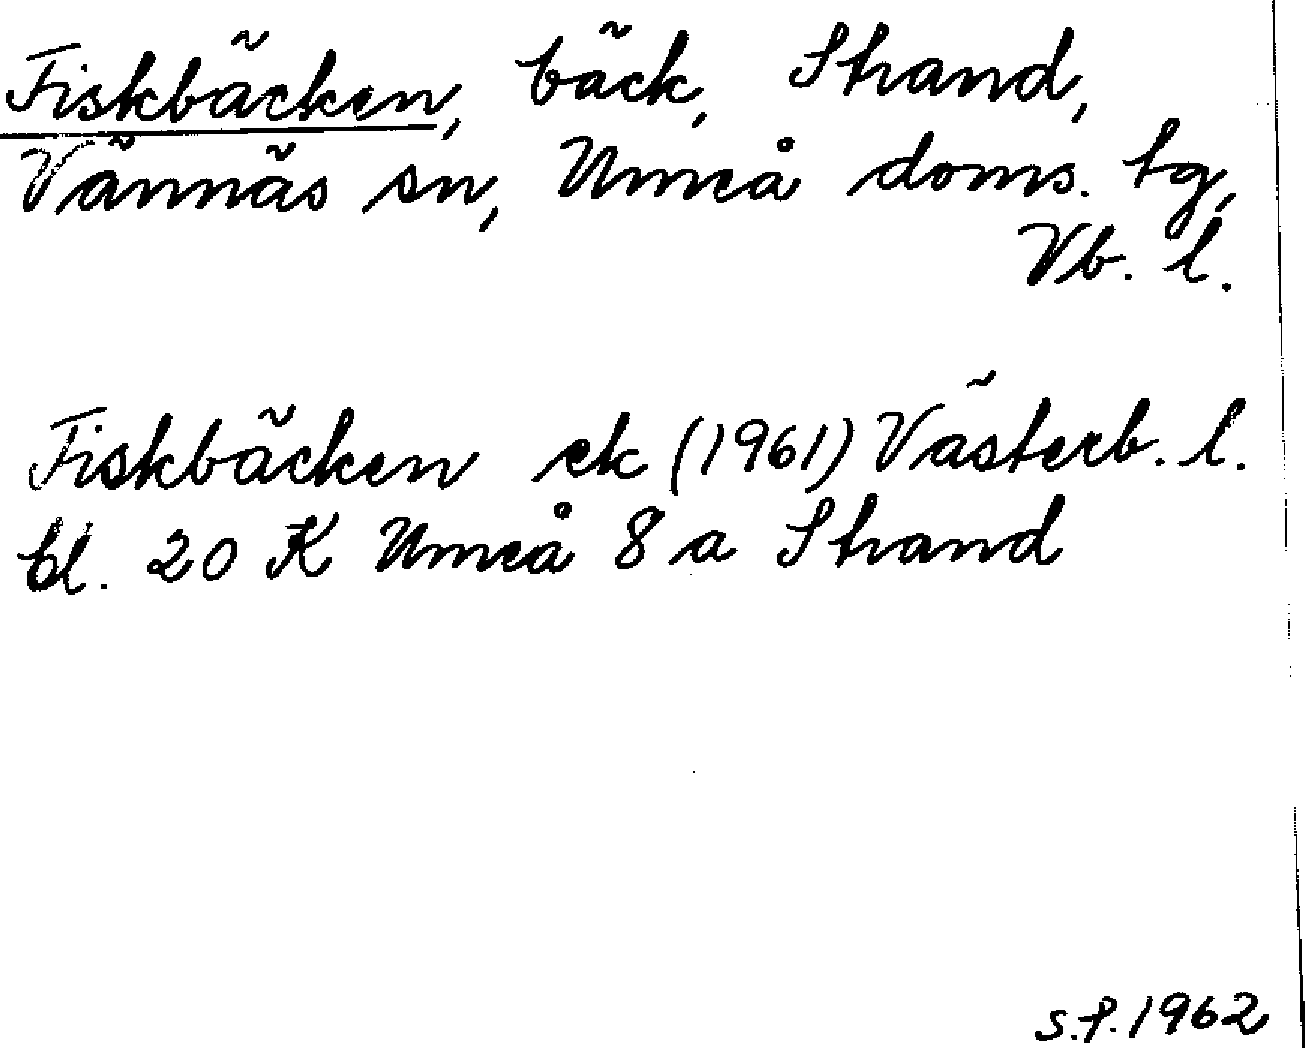 Fiskbäcken, bäck, Strand,
Vännäs sn, Umeå doms. tg,
Vb. l.
Fiskbäcken ek (1961) Västerb. l.
bl. 20 K Umeå 8 a Strand
S.f. 1962